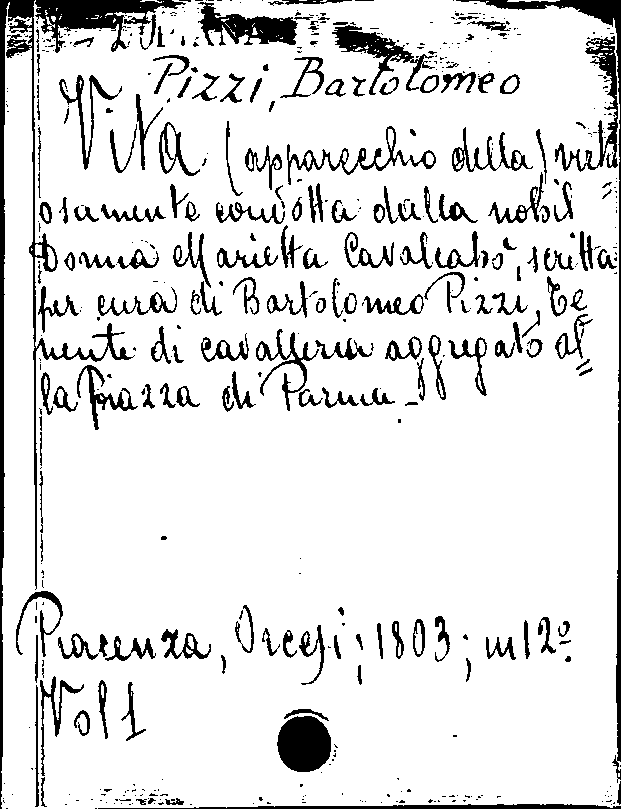 Pizzi, Bartolomeo
Vita (apparecchio della) virtu=
osamente condotta dalla nobil
Donna Marietta Cavalcabò, scritta
per cura di Bartolomeo Pizzi, Te=
nente di cavalleria aggregato al=
la Piazza di Parma -
Piacenza, Orcesi; 1803; in 12º
Vol 1